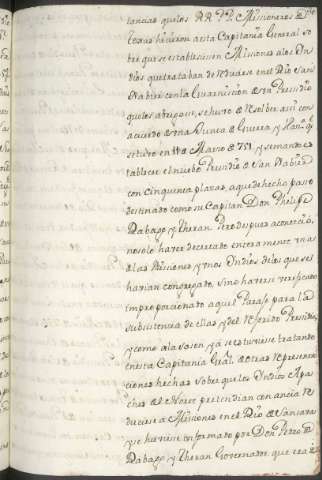 tancias que los RR. PP. Misioneros de
Texas hicieron a esta Capitania General so
bre que se estableciesen Misiones a los In
dios que trataban de reducirse en el Rio San
Xabier con la Guarnicion de un Presidio
que los abrigase, se huvo de resolber assi con
acuerdo de una Junta de Guerra y Haz.da q.e
se tubo en 11 de Marzo de 751, y se mando es
tablecer el nuebo Presidio de San Xabier
con cinquenta plazas, a que de hecho passo
destinado como su Capitan Don Phelipe
Rabago, y Theran. Pero despues acontecio,
no solo haverse decretado enteramente
de las Misiones y unos Indios, de los que se
havian congregado, sino haverse verificado
improporcionado aquel Parage para la
subsistencia de ellas y del referido Presidio,
y como a la sazon, ya se estuviese tratando
en esta Capitania Gral. de otras representa
ciones hechas sobre que los Indios Apa
ches del Norte pretendian con ancia re
ducirse a Misiones en el Rio de San Saba
que havia ynformado por Don Pedro de
Rabago, y Theran Governador que era